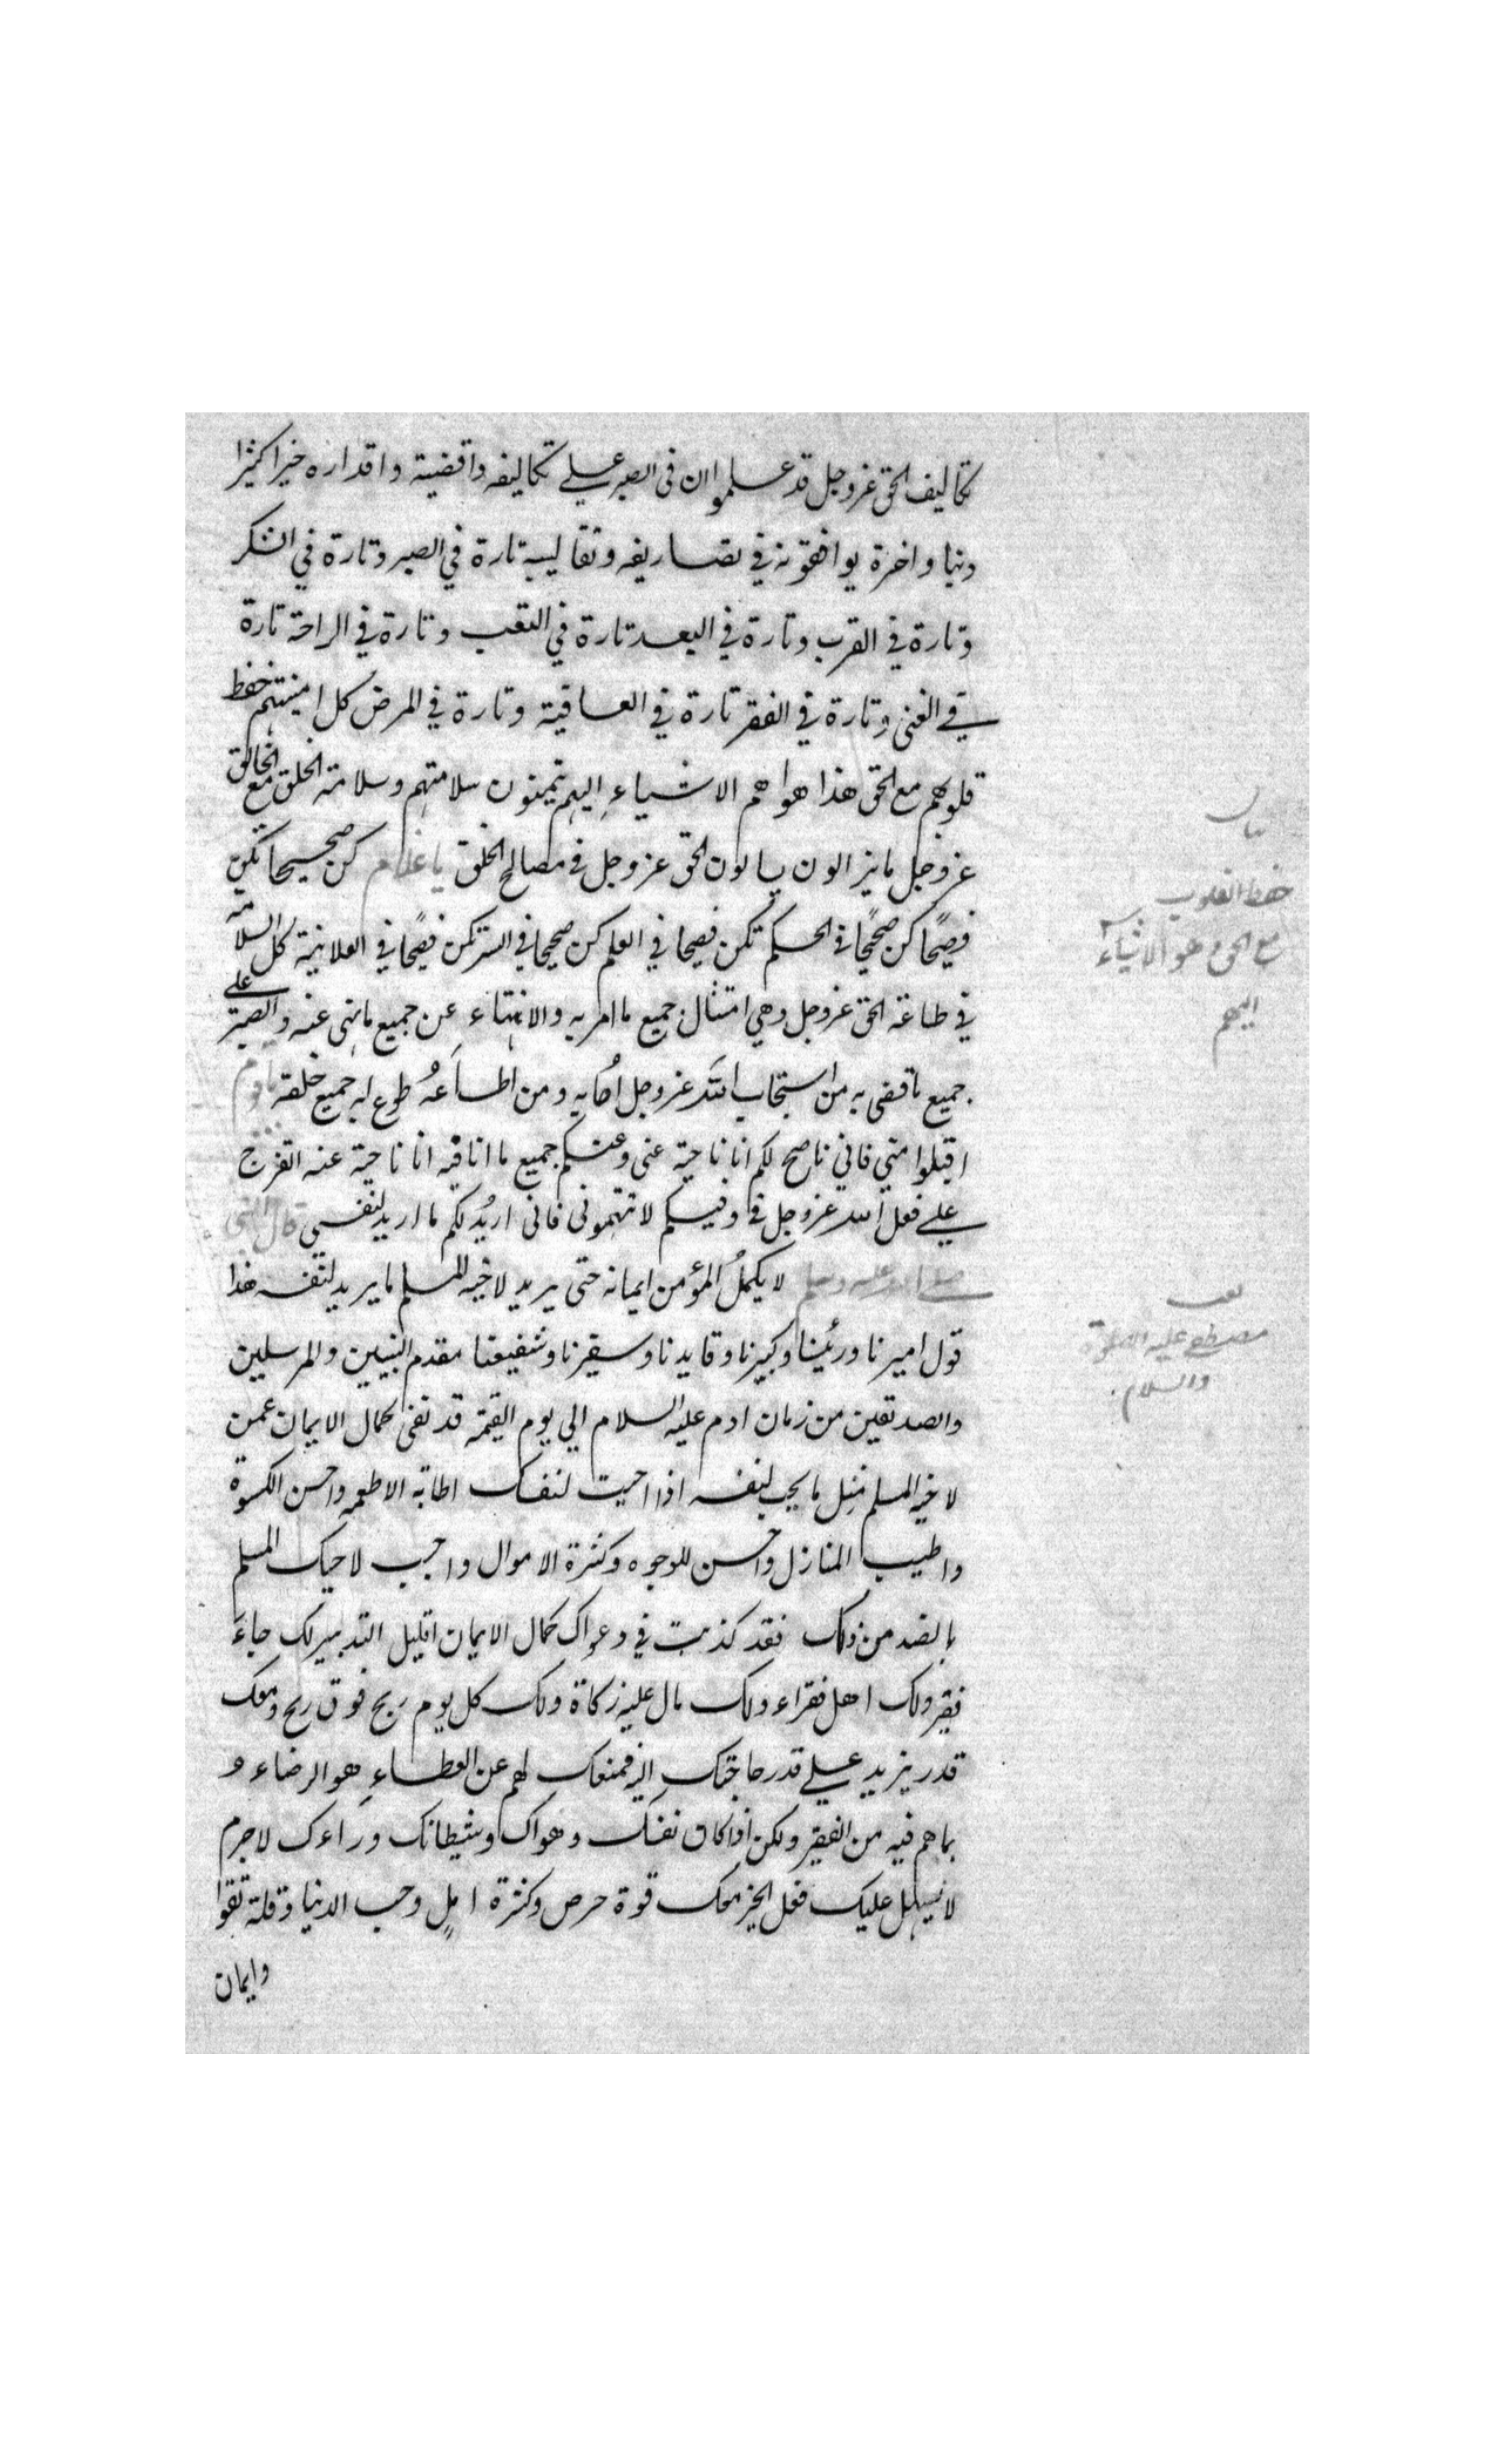 تكاليف الحق عز وجل قد علموا ان فى الصبر على تكاليفه واقضيته واقداره خيرا كثيرا
دنيا واخرة يوافقونه في تصاريفه وتقاليبه تارة في الصبر وتارة في الشكر
وتارة في القرب وتارة في البعد تارة في التعب وتارة في الراحة تارة
في الغنى وتارة في الفقر تارة في العافية وتارة في المرض كل امنيتهم حفظ
قلوبهم مع الحق هذا هو اهم الاشياء اليهم يتمنون سلامتهم وسلامة الخلق مع الخالق
عز وجل ما يزالون يسالون الحق عز وجل في مصالح الخلق يا غلام كن صحيحا تكن
فصيحًا كن صحيحًا في الحكم تكن فصيحا في العلم كن صحيحا في السر تكن فصيحًا في العلانية كل السلامة
في طاعة الحق عز وجل وهي امتثال جميع ما امر به والانتهاء عن جميع ما نهى عنه والصبر على
جميع ما قضى به من استجاب الله عز وجل اجابه ومن اطاعهُ طوع له جميع خلقه يا قوم
اقبلوا مني فاني ناصح لكم انا ناحية عنى وعنكم جميع ما انا فيه انا ناحية عنه اتفرج
على فعل الله عز وجل في وفيكم لا تتهمونى فانى اريد لكم ما اريد لنفسي قال النبي
صلى الله عليه وسلم لا يكملُ المؤمن ايمانه حتى يريد لاخيه المسلم ما يريد لنفسه هذا
قول اميرنا ورئيسنا وكبيرنا وقايدنا وسفيرنا وشفيعنا مقدم النبيين والمرسلين
والصديقين من زمان ادم عليه السلام الي يوم القيمة قد نفى كمال الايمان عمن
لاخيه المسلم مثل ما يحب لنفسه اذا احببت لنفسك اطايب الاطعمه واحسن الكسوة
واطيب المنازل واحسن الوجوه وكثرة الاموال واحببت لاخيك المسلم
بالضد من ذلك فقد كذبت في دعواك كمال الايمان اقليل التدبير لك جاءَ
فقير ولك اهل فقراء ولك مال عليه زكاة ولك كل يوم ربح فوق ربح ومعك
قدر يزيد على قدر حاجتك اليه فمنعك لهم عن العطاء هو الرضاء و
بما هم فيه من الفقر ولكن اذا كان نفسك وهواك وشيطانك وراءك لا جرم
لا يسهل عليك فعل الخير معك قوة حرص وكثرة امل وحب الدنيا وقلة تقوا
وايمان
بيان
حفظ القلوب
مع الحق وهو الاشياء
اليهم
مصطفى عليه الصلوة
والسلام